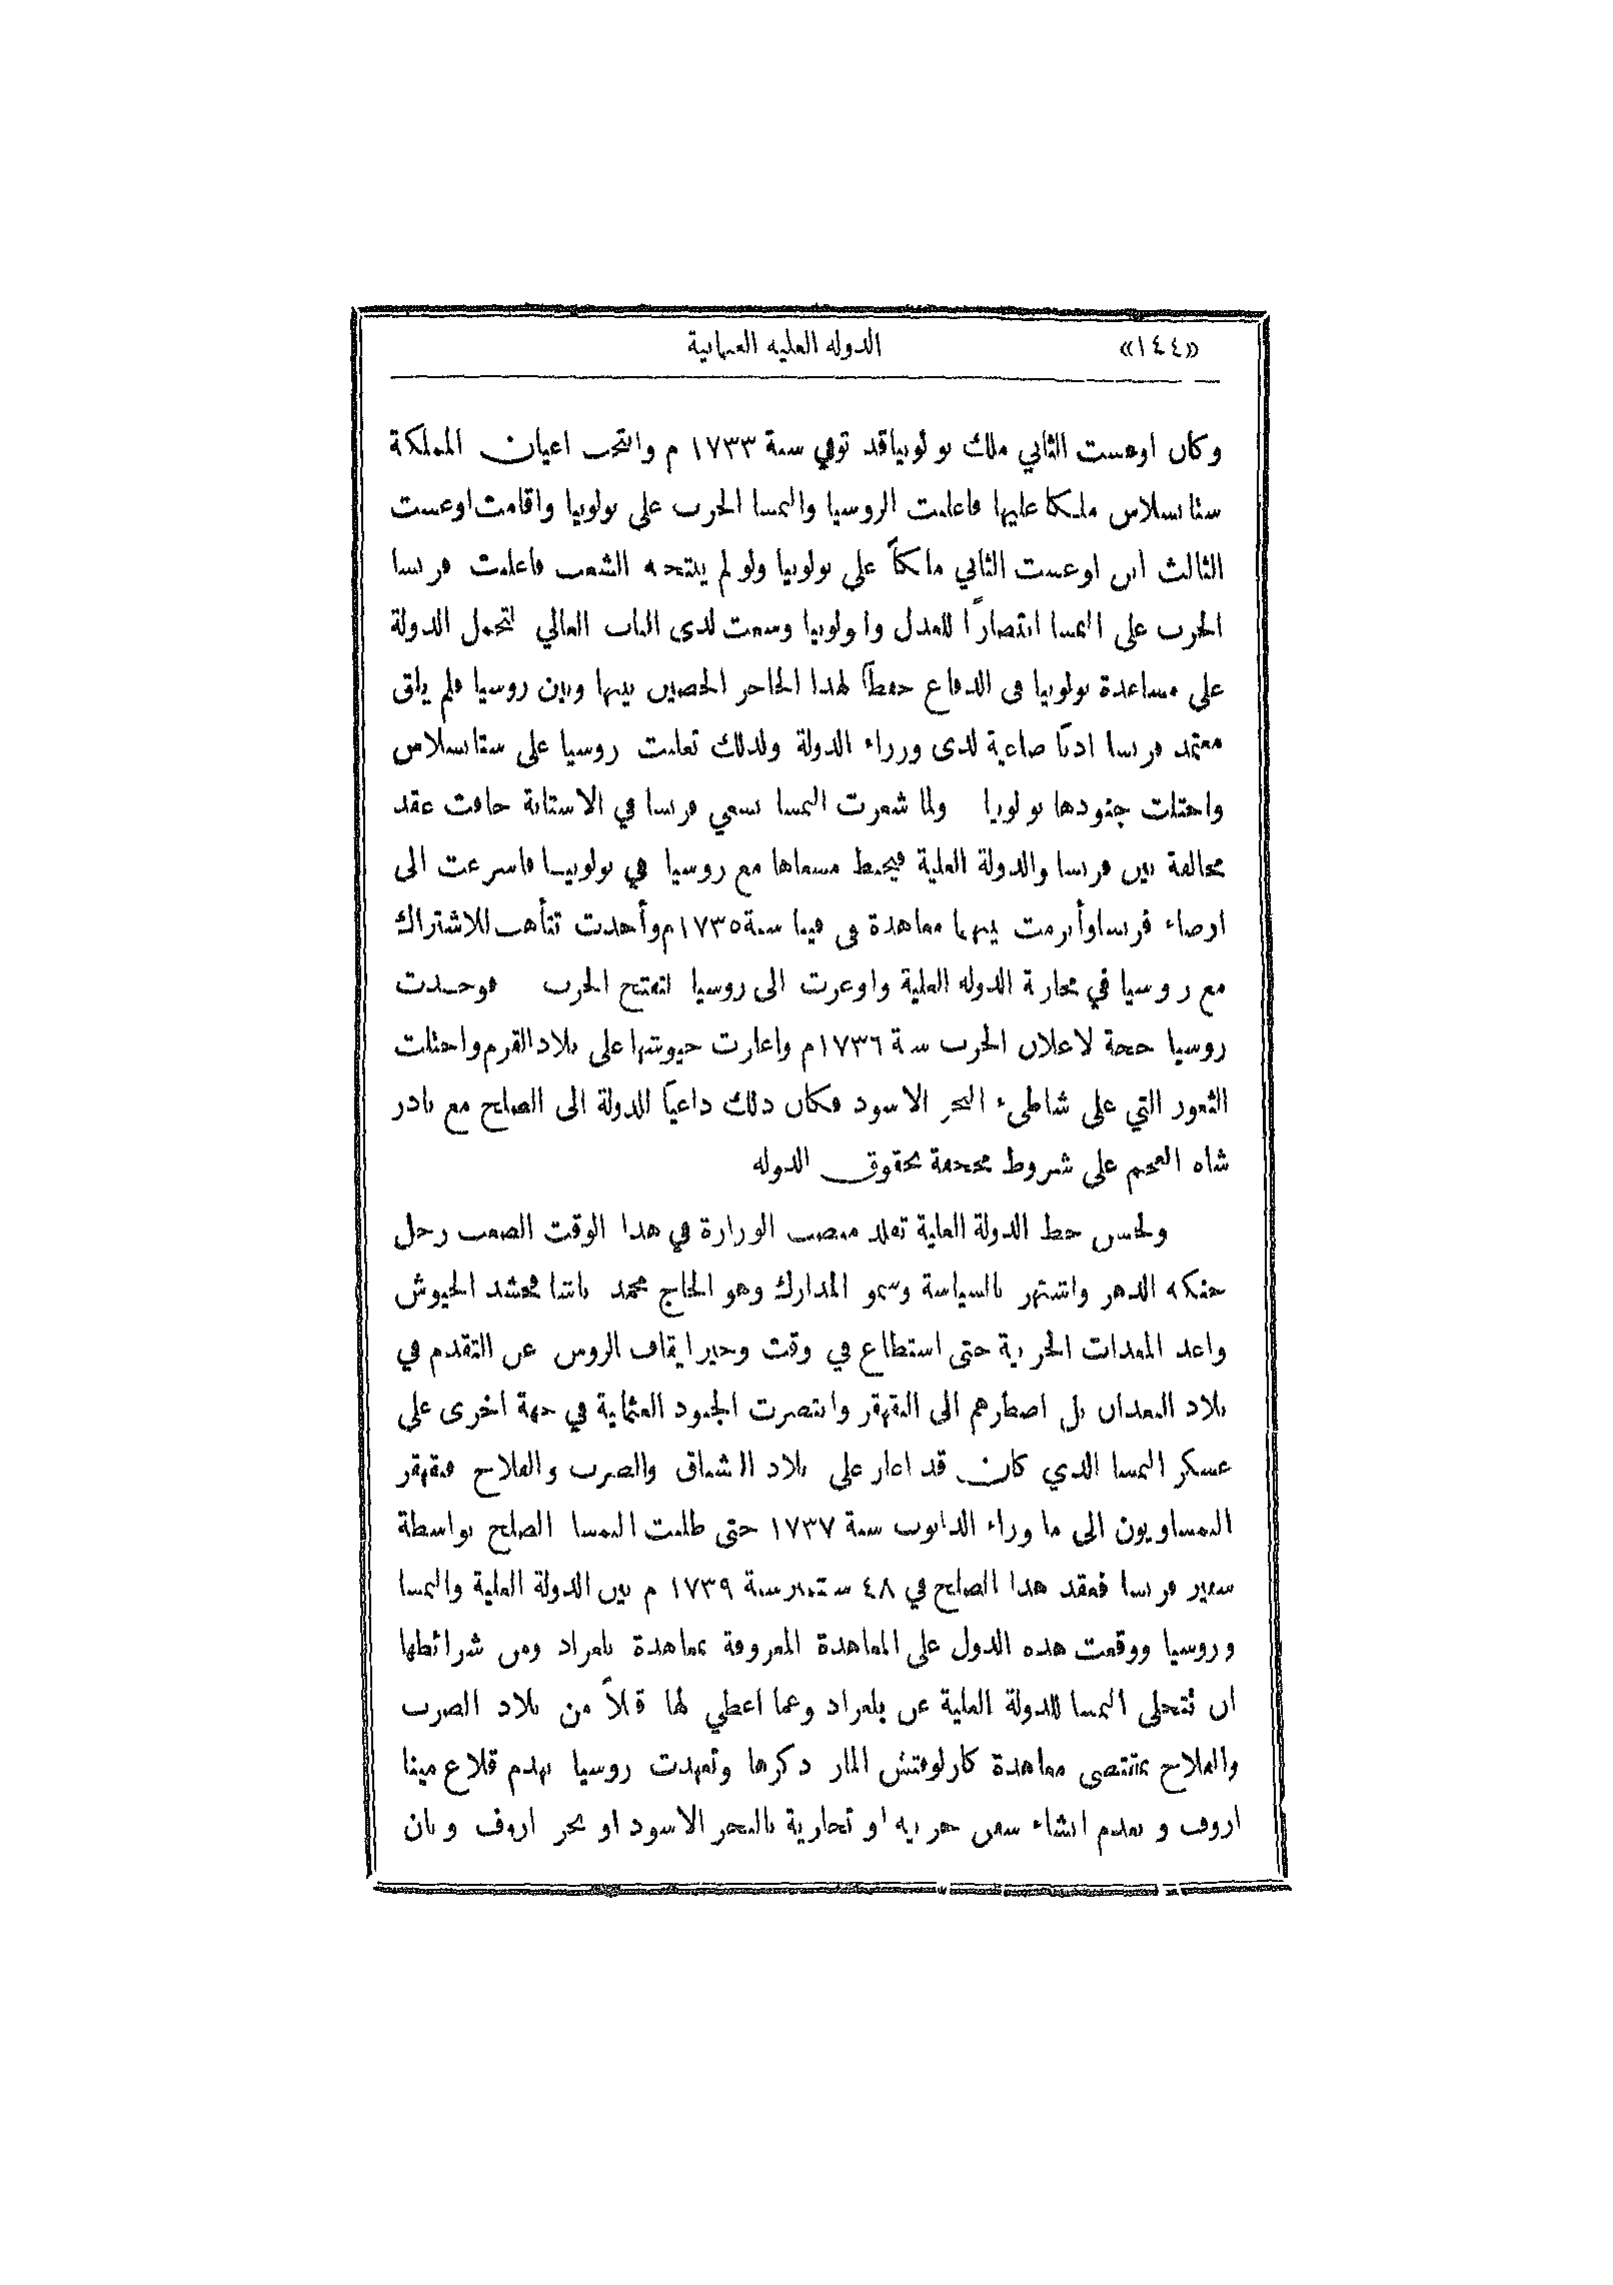 «١٤٤» الدولة العلية العثمانية
وكان اوغست الثاني ملك بولونيا قد توفي سنة ١٧٣٣ م وانتخب اعيان المملكة
ستانسلاس ملكا عليها فاعلنت الروسيا والنمسا الحرب على بولونيا واقامت اوغست
الثالث ابن اوغست الثاني ملكاً على بولونيا ولو لم ينتخبه الشعب فاعلنت فرنسا
الحرب على النمسا انتصاراً للعدل ولبولونيا وسعت لدى الباب العالي لتحمل الدولة
على مساعدة بولونيا في الدفاع حفظاً لهذا الحاجز الحصين بينها وبين روسيا فلم يلق
معتمد فرنسا اذناً صاغية لدى وزراء الدولة ولذلك تغلبت روسيا على ستانسلاس
واحتلت جنودها بولونيا ولما شعرت النمسا بسعي فرنسا في الاستانة خافت عقد
محالفة بين فرنسا والدولة العلية فيحبط مسعاها مع روسيا في بولونيا فاسرعت الى
ارضاء فرنسا وأبرمت بينهما معاهدة في فينا سنة ١٧٣٥م وأخذت تتأهب للاشتراك
مع روسيا في محاربة الدولة العلية واوعزت الى روسيا لتفتتح الحرب فوجدت
روسيا حجة لاعلان الحرب سنة ١٧٣٦م واغارت جيوشها على بلاد القرم واحتلت
الثغور التي على شاطىء البحر الاسود فكان ذلك داعياً للدولة الى الصلح مع نادر
شاه العجم على شروط مجحفة بحقوق الدولة
ولحسن حظ الدولة العلية تقلد منصب الوزارة في هذا الوقت الصعب رجل
حنكه الدهر واشتهر بالسياسة وسمو المدارك وهو الحاج محمد باشا فحشد الجيوش
واعد المعدات الحربية حتى استطاع في وقت وجيز ايقاف الروس عن التقدم في
بلاد البغدان بل اضطرهم الى التقهقر وانتصرت الجنود العثمانية في جهة اخرى على
عسكر النمسا الذي كان قد اغار على بلاد البشناق والصرب والفلاخ فتقهقر
النمساويون الى ما وراء الدانوب سنة ١٧٣٧ حتى طلبت النمسا الصلح بواسطة
سفير فرنسا فعقد هذا الصلح في ٤٨ ستمبر سنة ١٧٣٩ م بين الدولة العلية والنمسا
وروسيا ووقعت هذه الدول على المعاهدة المعروفة بمعاهدة بلغراد ومن شرائطها
ان تتخلى النمسا للدولة العلية عن بلغراد وعما اعطي لها قبلاً من بلاد الصرب
والفلاخ بمقتضى معاهدة كارلوفتش المار ذكرها وتعهدت روسيا بهدم قلاع مينا
ازوف وبعدم انشاء سفن حربية او تجارية بالبحر الاسود او بحر ازوف وبان